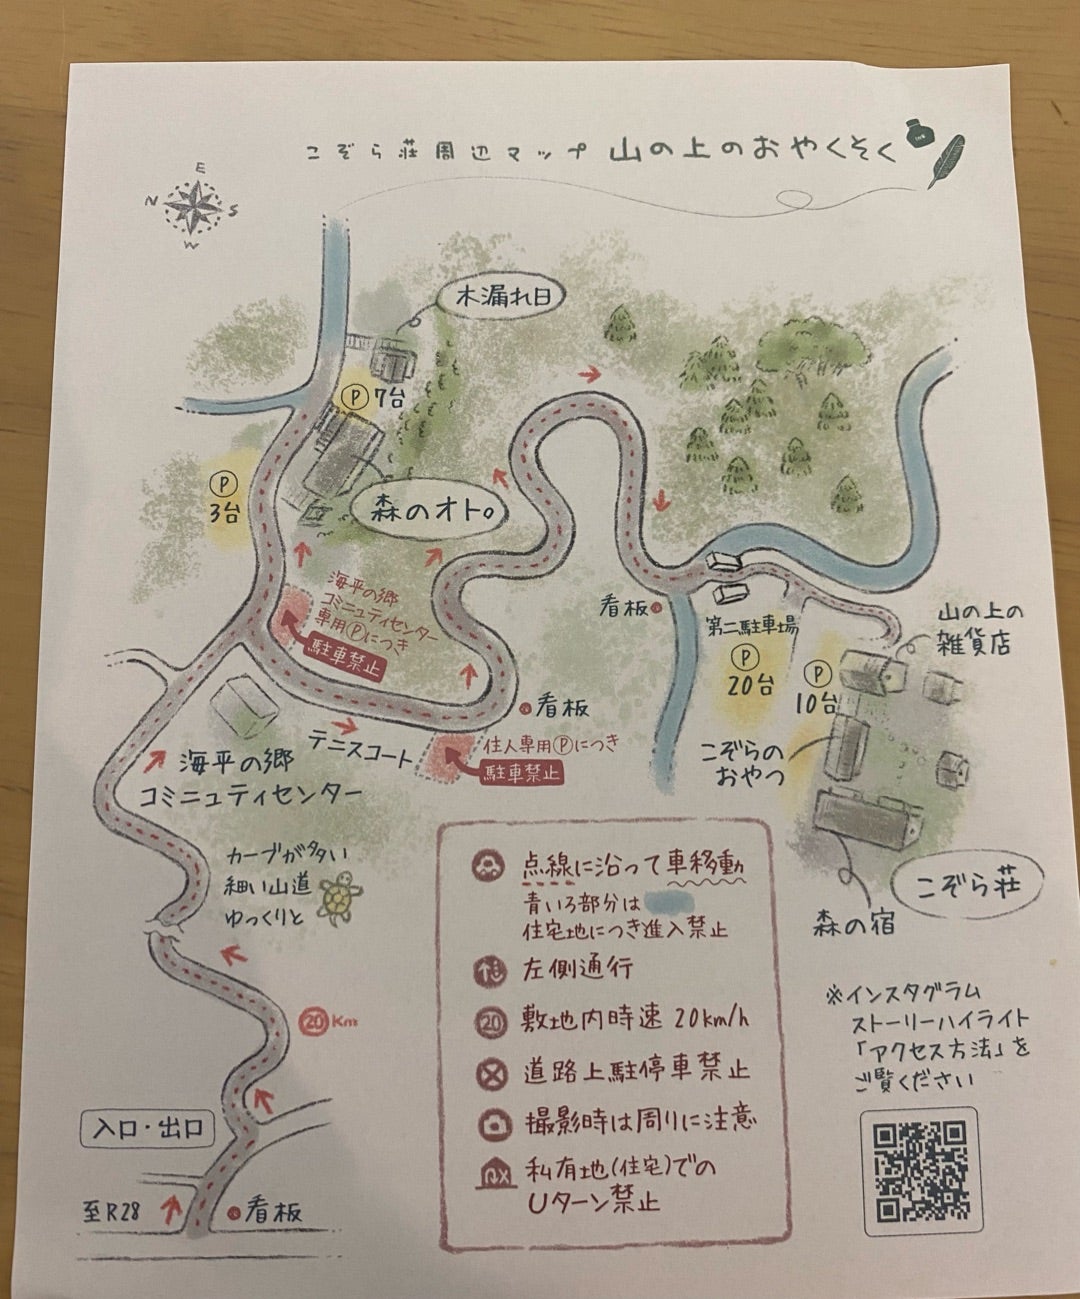 こぞら荘周辺マップ 山の上のおやくそく
INK
E
N
S
W
木漏れ日
P 7台
P
3台
森のオト。
海平の郷
コミュニティセンター
専用Pにつき
駐車禁止
看板
第二駐車場
P
20台
P
10台
山の上の
雑貨店
看板
テニスコート
住人専用Pにつき
駐車禁止
こぞらの
おやつ
海平の郷
コミュニティセンター
カーブが多い
細い山道
ゆっくりと
こぞら荘
森の宿
20 Km
入口・出口
至R28
看板
点線に沿って車移動
青いろ部分は
住宅地につき進入禁止
左側通行
20 敷地内時速 20km/h
道路上駐停車禁止
撮影時は周りに注意
私有地(住宅)での
Uターン禁止
※インスタグラム
ストーリーハイライト
「アクセス方法」を
ご覧ください